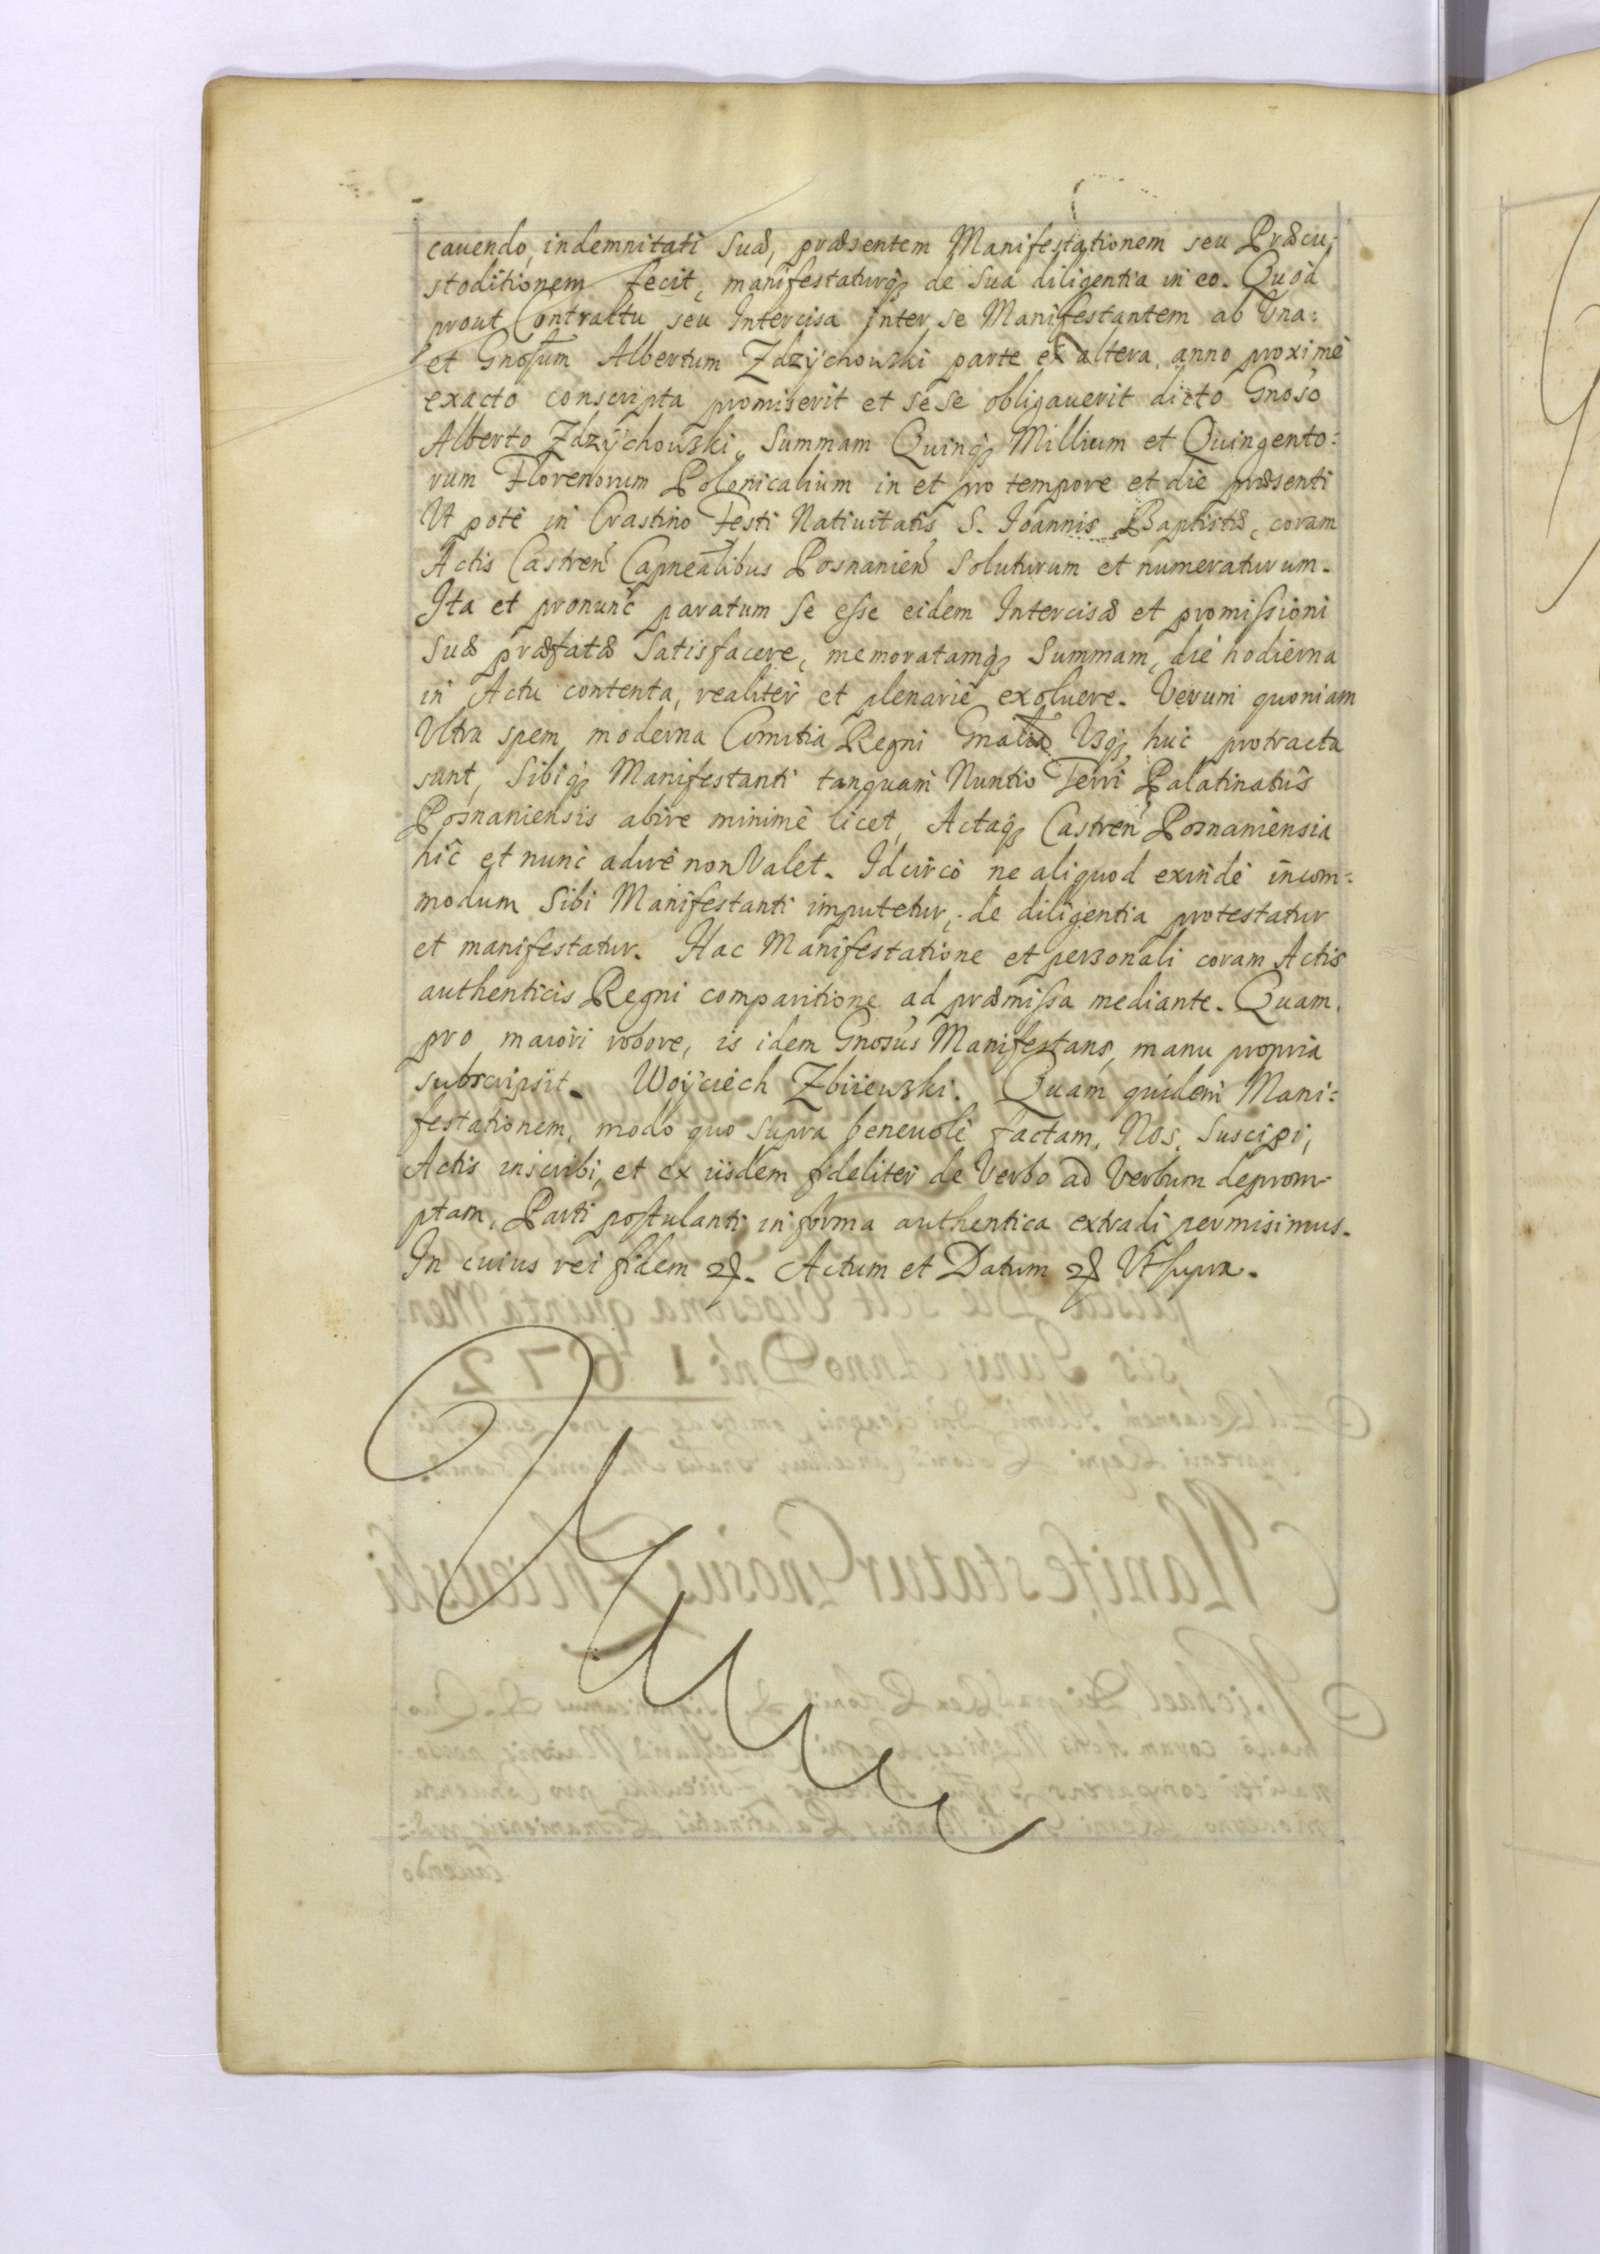 cauendo, indemnitati Suæ, præsentem Manifestationem seu Præcu-
stoditionem fecit, manifestaturq3 de Sua diligentia in eo. Quod
prout Contractu seu Intercisa inter se Manifestantem ab Vna:
et Gnosum Albertum Zdzÿchowski parte ex altera, anno proximè
exacto conscripta promiserit et sese obligauerit dicto Gnoso
Alberto Zdzÿchowski, Summam Quinq3 Millium et Quingento:
rum Florenorum Polonicalium in et pro tempore et die præsenti
Vt potè in Crastino Festi Natiuitatis S. Ioannis Baptistæ, coram
Actis Castren Capnealibus Posnanien Soluturum et numeraturum.
Ita et pronunc paratum Se esse eidem Intercisæ et promissioni
Suæ præfatæ Satisfacere, memoratamq3 Summam, die hodierna
in Actu contenta, realiter et plenariè exoluere. Verum quoniam
Vltra spem moderna Comitia Regni Gnalia Vsq3 huc protracta
sunt, Sibiq3 Manifestanti tanquam Nuntio Terri Palatinatus
Posnaniensis abire minimè licet, Actaq3 Castren Posnaniensia
hîc et nunc adire non Valet. Idcircò ne aliquod exindè incom:
modum Sibi Manifestanti imputetur, de diligentia protestatur
et manifestatur. Hac Manifestatione et personali coram Actis
authenticis Regni comparitione ad præmissa mediante. Quam
pro maiori robore, is idem Gnosus Manifestans, manu propria
subscripsit. Woÿciech Zbiiewski. Quam quidem Mani:
festationem, modo quo supra beneuolè factam, Nos, Suscipi,
Actis inscribi, et ex iisdem fideliter de Verbo ad Verbum deprom-
ptam, Parti postulanti in forma authentica extradi permisimus.
In cuius rei fidem &. Actum et Datum & Vt supra.